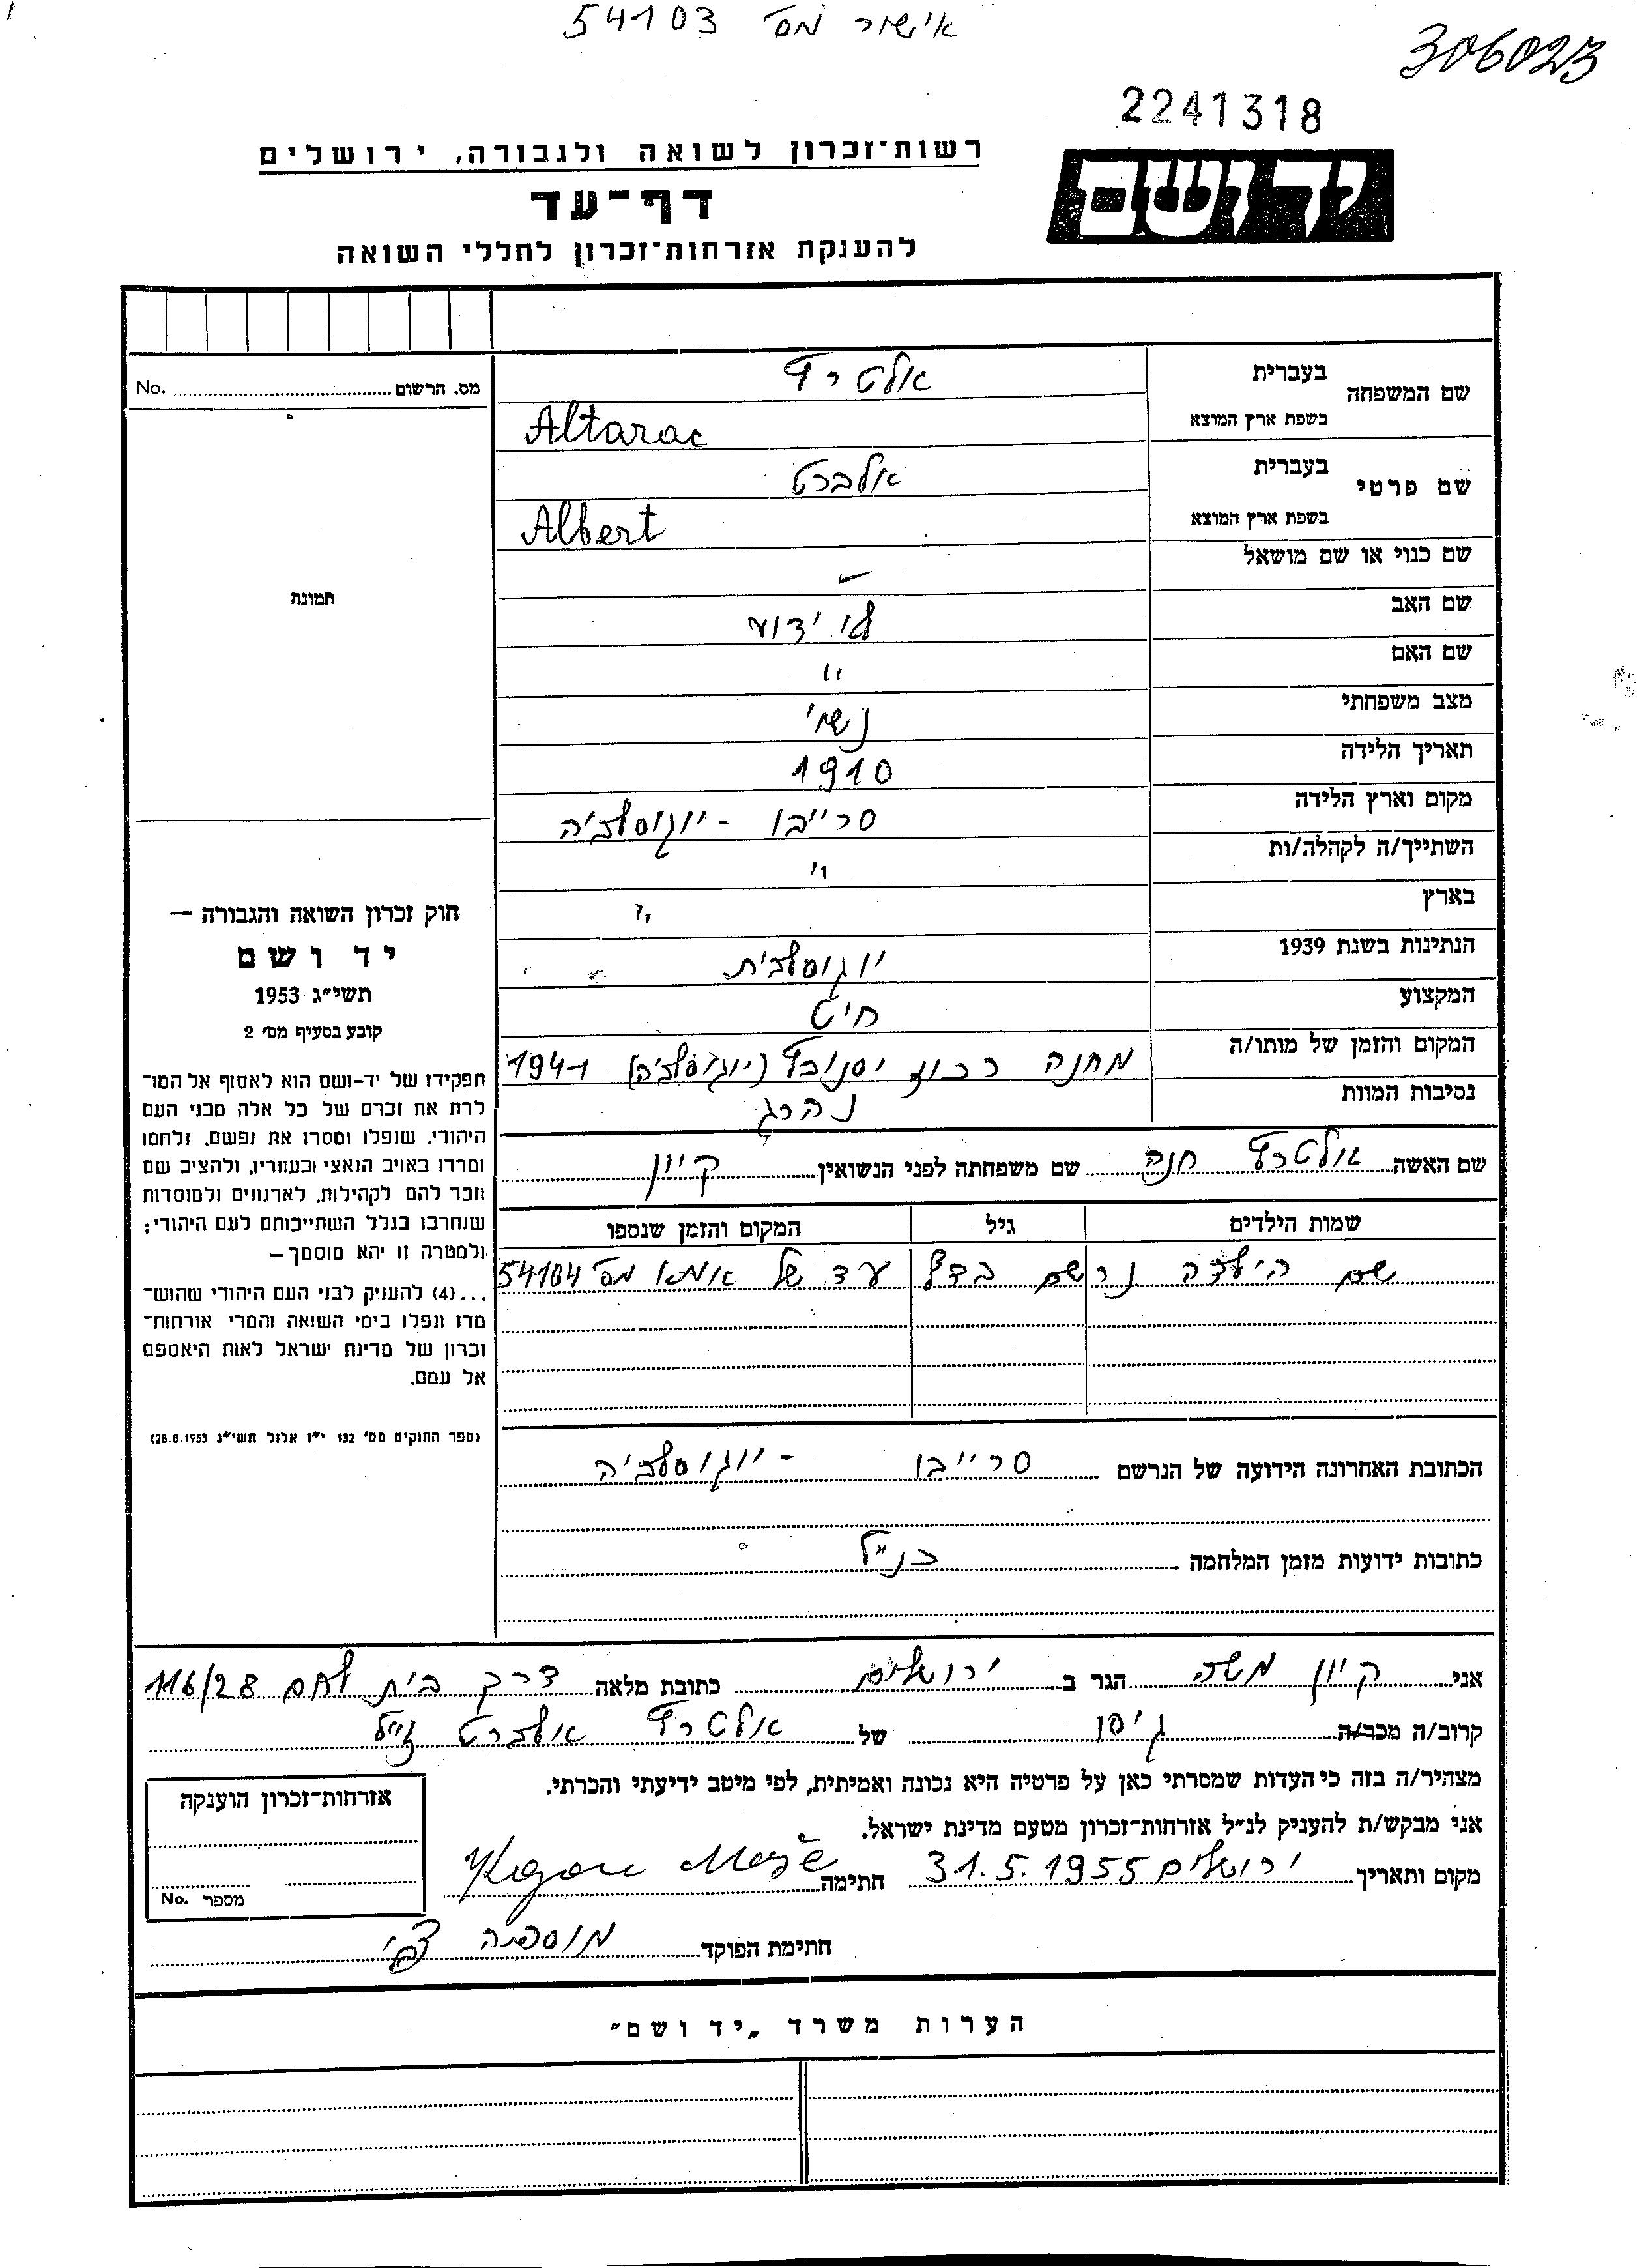 אישור מס' 54103
306023
2241318
ידושם
רשות־זכרון לשואה ולגבורה, ירושלים
דף־עד
להענקת אזרחות־זכרון לחללי השואה
שם המשפחה בעברית אלטרץ
בשפת ארץ המוצא Altarac
שם פרטי בעברית אלברט
בשפת ארץ המוצא Albert
שם כנוי או שם מושאל –
שם האב לא ידוע
שם האם "
מצב משפחתי נשוי
תאריך הלידה 1910
מקום וארץ הלידה סרייבו - יוגוסלביה
השתייך/ה לקהלה/ות "
בארץ "
הנתינות בשנת 1939 יוגוסלבית
המקצוע חייט
המקום והזמן של מותו/ה מחנה רכוז יסנובץ (יוגוסלביה) 1941
נסיבות המוות נהרג
שם האשה אלטרץ חנה שם משפחתה לפני הנשואין
שמות הילדים גיל המקום והזמן שנספו
שם הילדה נרשם בדף עד של אמא מס' 54104
הכתובת האחרונה הידועה של הנרשם סרייבו - יוגוסלביה
כתובות ידועות מזמן המלחמה כנ"ל
מס. הרשום No.
תמונה
חוק זכרון השואה והגבורה —
יד ושם
תשי"ג 1953
קובע בסעיף מס' 2
תפקידו של יד-ושם הוא לאסוף אל המו־
לדת את זכרם של כל אלה מבני העם
היהודי, שנפלו ומסרו את נפשם, נלחמו
ומרדו באויב הנאצי ובעוזריו, ולהציב שם
וזכר להם לקהילות, לארגונים ולמוסדות
שנחרבו בגלל השתייכותם לעם היהודי;
ולמטרה זו יהא מוסמך —
...(4) להעניק לבני העם היהודי שהוש־
מדו ונפלו בימי השואה והמרי אזרחות־
זכרון של מדינת ישראל לאות היאספם
אל עמם.
(ספר החוקים מס' 132 י"ז אלול תשי"ג 28.8.1953)
אני משה הגר ב ירושלים כתובת מלאה דרך בית לחם 116/28
קרוב/ה מכר/ה גיסו של אלטרץ אלברט ז"ל
מצהיר/ה בזה כי העדות שמסרתי כאן על פרטיה היא נכונה ואמיתית, לפי מיטב ידיעתי והכרתי.
אני מבקש/ת להעניק לנ"ל אזרחות־זכרון מטעם מדינת ישראל.
מקום ותאריך ירושלים 31.5.1955 חתימה
חתימת הפוקד
אזרחות־זכרון הוענקה
מספר No.
הערות משרד „יד ושם"